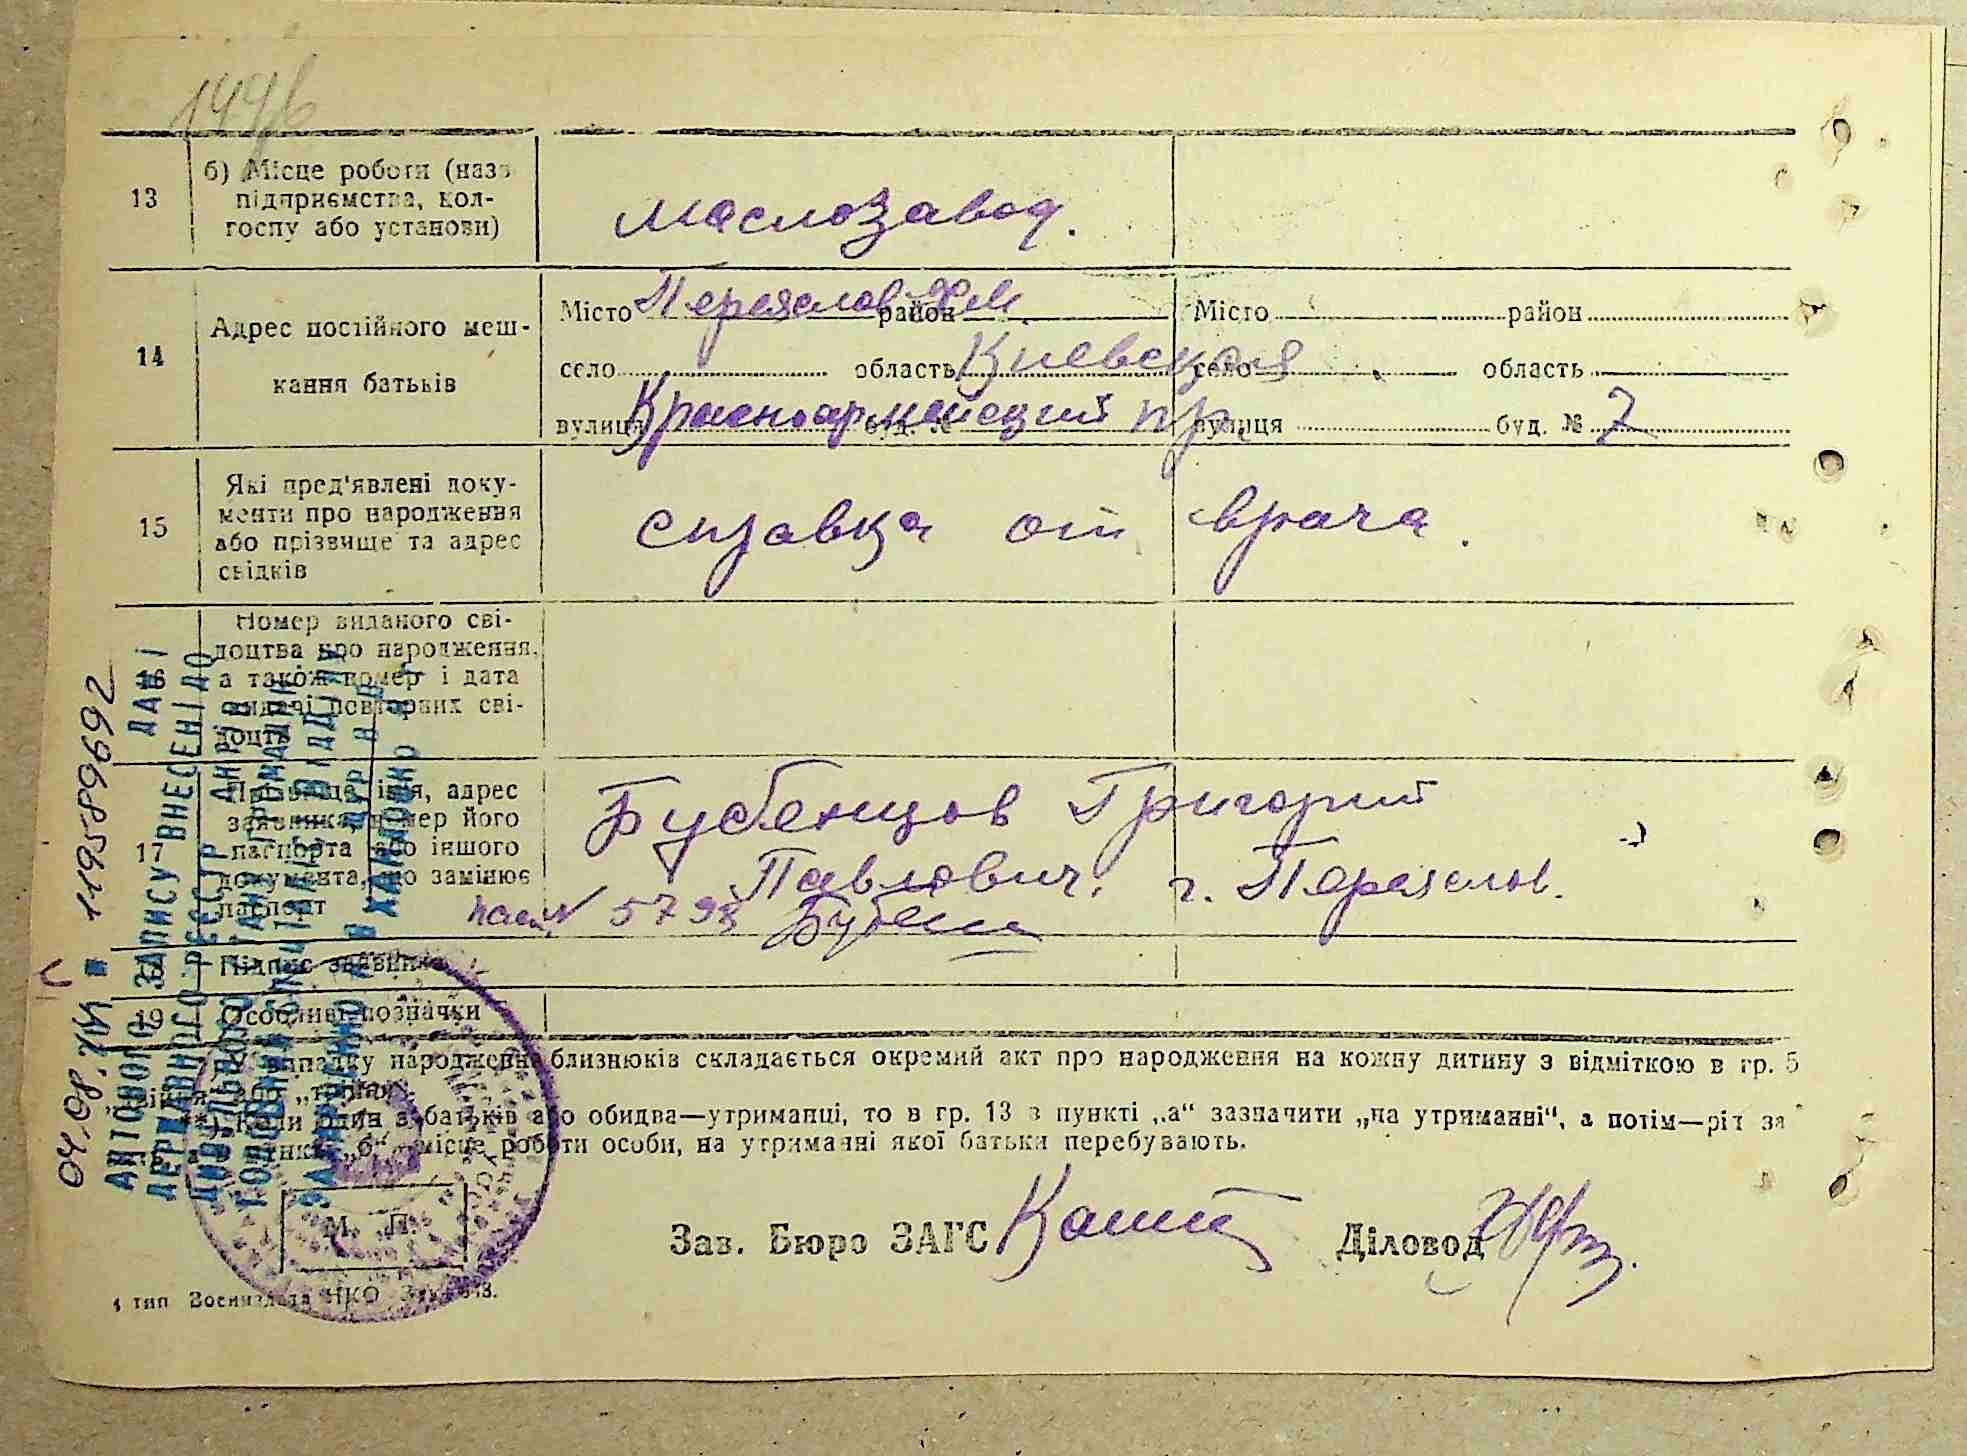 1996
13
б) Місце роботи (назв
підприємства, кол-
госпу або установи)
маслозавод.
14
Адрес постійного меш-
кання батьків
Місто Переяслов Хм. район
село область Киевская
вулиця Красноармейский пр.
Місто район
село область
вулиця буд. № 7
15
Які пред'явлені доку-
менти про народження
або прізвище та адрес
свідків
справка от врача.
16
Номер виданого сві-
доцтва про народження,
а також номер і дата
видачі повторних сві-
доцтв
17
Прізвище, ім'я, адрес
заявника, номер його
паспорта або іншого
документа, що замінює
паспорт
Бубенцов Григорий
Павлович. г. Переяслов.
пасп. № 5798 Бубенц
Підпис заявника
19
Особливі позначки
У випадку народження близнюків складається окремий акт про народження на кожну дитину з відміткою в гр. 5
„двійня“ або „трійня“.
**) Коли один з батьків або обидва—утриманці, то в гр. 13 в пункті „а“ зазначити „на утриманні“, а потім—рід за
„б“ місце роботи особи, на утриманні якої батьки перебувають.
М. П.
Зав. Бюро ЗАГС
Діловод
4 тип Воениздата НКО
04.08.
119589692
ДАНІ
АКТОВОГО ЗАПИСУ ВНЕСЕНІ ДО
ДЕРЖАВНОГО РЕЄСТР